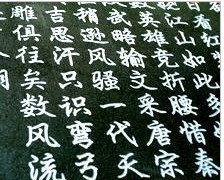 看红
江山如此
英雄竞折腰惜秦
武略输文采唐宗
稍逊风骚一代天
吉思汗只识弯弓
雕俱往矣数风流